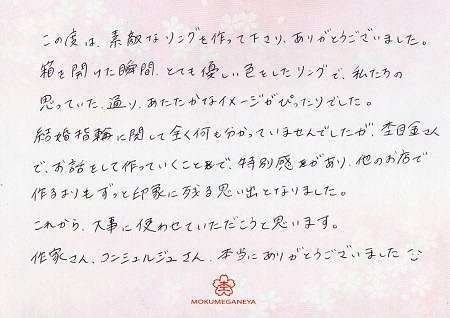 この度は、素敵なリングを作って下さり、ありがとうございました。
箱を開けた瞬間、とても優しい色をしたリングで、私たちの
思っていた通り、あたたかなイメージがぴったりでした。
結婚指輪に関して全く何も分かっていませんでしたが、杢目金さん
で、お話をして作っていくことで、特別感があり、他のお店で
作るよりもずっと印象に残る思い出となりました。
これから、大事に使わせていただこうと思います。
作家さん、コンシュルジュさん、本当にありがとうございました
杢
MOKUMEGANEYA